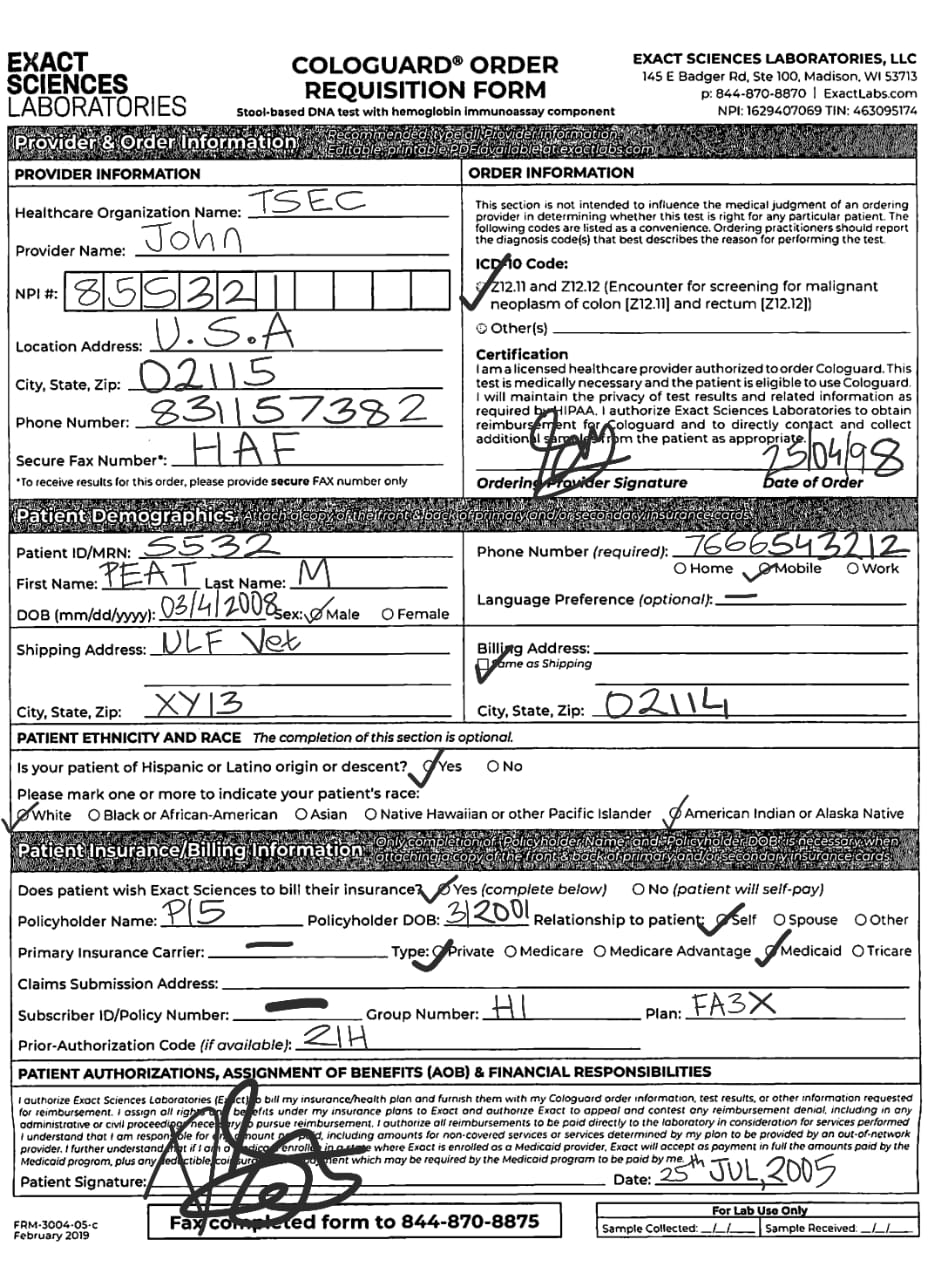 EXACT
SCIENCES
LABORATORIES
COLOGUARD® ORDER
REQUISITION FORM
Stool-based DNA test with hemoglobin immunoassay component
EXACT SCIENCES LABORATORIES, LLC
145 E Badger Rd, Ste 100, Madison, WI 53713
p: 844-870-8870 | ExactLabs.com
NPI: 1629407069 TIN: 463095174
Provider & Order Information Recommended type all Provider Information
Editable, printable PDF available at exactlabs.com
PROVIDER INFORMATION
Healthcare Organization Name: TSEC
Provider Name: John
NPI #: 85532
Location Address: U.S.A
City, State, Zip: 02115
Phone Number: 831157382
Secure Fax Number*: HAF
*To receive results for this order, please provide secure FAX number only
ORDER INFORMATION
This section is not intended to influence the medical judgment of an ordering
provider in determining whether this test is right for any particular patient. The
following codes are listed as a convenience. Ordering practitioners should report
the diagnosis code(s) that best describes the reason for performing the test.
ICD-10 Code:
Z12.11 and Z12.12 (Encounter for screening for malignant
neoplasm of colon [Z12.11] and rectum [Z12.12])
Other(s)
Certification
I am a licensed healthcare provider authorized to order Cologuard. This
test is medically necessary and the patient is eligible to use Cologuard.
I will maintain the privacy of test results and related information as
required by HIPAA. I authorize Exact Sciences Laboratories to obtain
reimbursement for Cologuard and to directly contact and collect
additional samples from the patient as appropriate.
25/04/98
Ordering Provider Signature Date of Order
Patient Demographics. Attach a copy of the front & back of primary and/or secondary insurance cards.
Patient ID/MRN: 5532
First Name: PEAT Last Name: M
DOB (mm/dd/yyyy): 03/4/2008 Sex: Male Female
Phone Number (required): 7666543212
Home Mobile Work
Language Preference (optional): —
Shipping Address: ULF Vet
City, State, Zip: XY13
Billing Address:
Same as Shipping
City, State, Zip: 02114
PATIENT ETHNICITY AND RACE The completion of this section is optional.
Is your patient of Hispanic or Latino origin or descent? Yes No
Please mark one or more to indicate your patient's race:
White Black or African-American Asian Native Hawaiian or other Pacific Islander American Indian or Alaska Native
Patient Insurance/Billing Information Only completion of Policyholder Name, and Policyholder DOB is necessary when
attaching a copy of the front & back of primary and/or secondary insurance cards
Does patient wish Exact Sciences to bill their insurance? Yes (complete below) No (patient will self-pay)
Policyholder Name: P15 Policyholder DOB: 3/2001 Relationship to patient: Self Spouse Other
Primary Insurance Carrier: — Type: Private Medicare Medicare Advantage Medicaid Tricare
Claims Submission Address:
Subscriber ID/Policy Number: — Group Number: H1 Plan: FA3X
Prior-Authorization Code (if available): 21H
PATIENT AUTHORIZATIONS, ASSIGNMENT OF BENEFITS (AOB) & FINANCIAL RESPONSIBILITIES
I authorize Exact Sciences Laboratories (Exact) to bill my insurance/health plan and furnish them with my Cologuard order information, test results, or other information requested
for reimbursement. I assign all rights and benefits under my insurance plans to Exact and authorize Exact to appeal and contest any reimbursement denial, including in any
administrative or civil proceedings necessary to pursue reimbursement. I authorize all reimbursements to be paid directly to the laboratory in consideration for services performed
I understand that I am responsible for any amount not paid, including amounts for non-covered services or services determined by my plan to be provided by an out-of-network
provider. I further understand that if I am a Medicaid enrollee in a state where Exact is enrolled as a Medicaid provider, Exact will accept as payment in full the amounts paid by the
Medicaid program, plus any deductible, coinsurance payment which may be required by the Medicaid program to be paid by me.
Patient Signature: Date: 25th JUL, 2005
FRM-3004-05-c
February 2019
Fax completed form to 844-870-8875
For Lab Use Only
Sample Collected: _/_/_ Sample Received: _/_/_